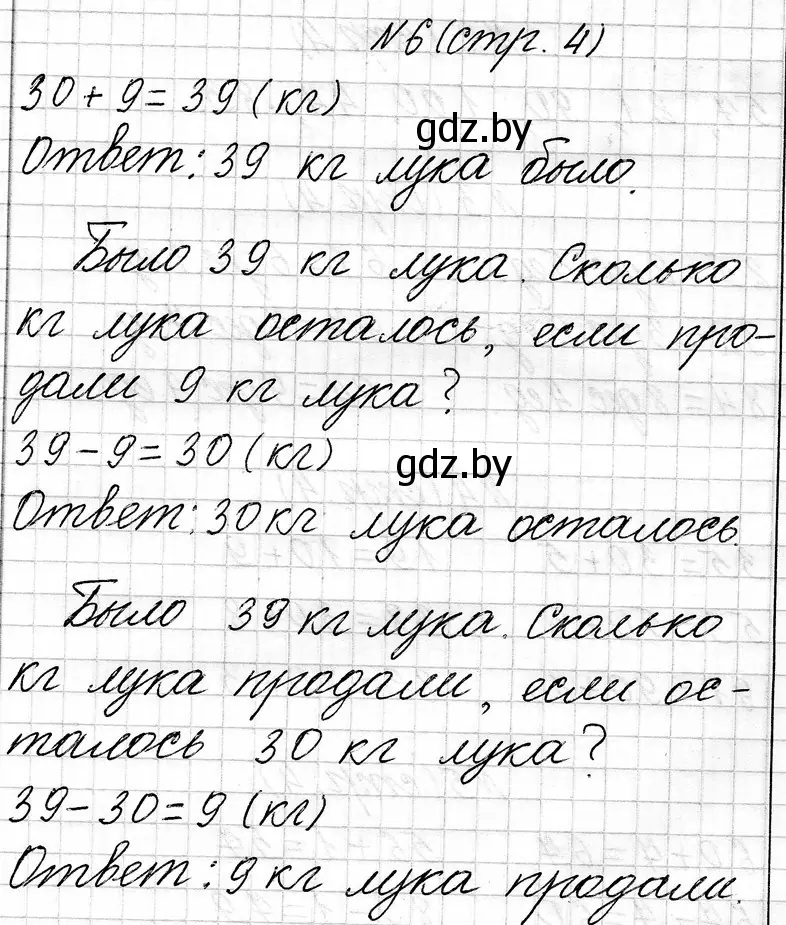 N6 (стр. 4)
30 + 9 = 39 (кг)
gdz.by
Ответ: 39 кг лука было.
Было 39 кг лука. Сколько
кг лука осталось, если про-
дали 9 кг лука?
39 - 9 = 30 (кг)
gdz.by
Ответ: 30 кг лука осталось.
Было 39 кг лука. Сколько
кг лука продали, если ос-
талось 30 кг лука?
39 - 30 = 9 (кг)
Ответ: 9 кг лука продали.